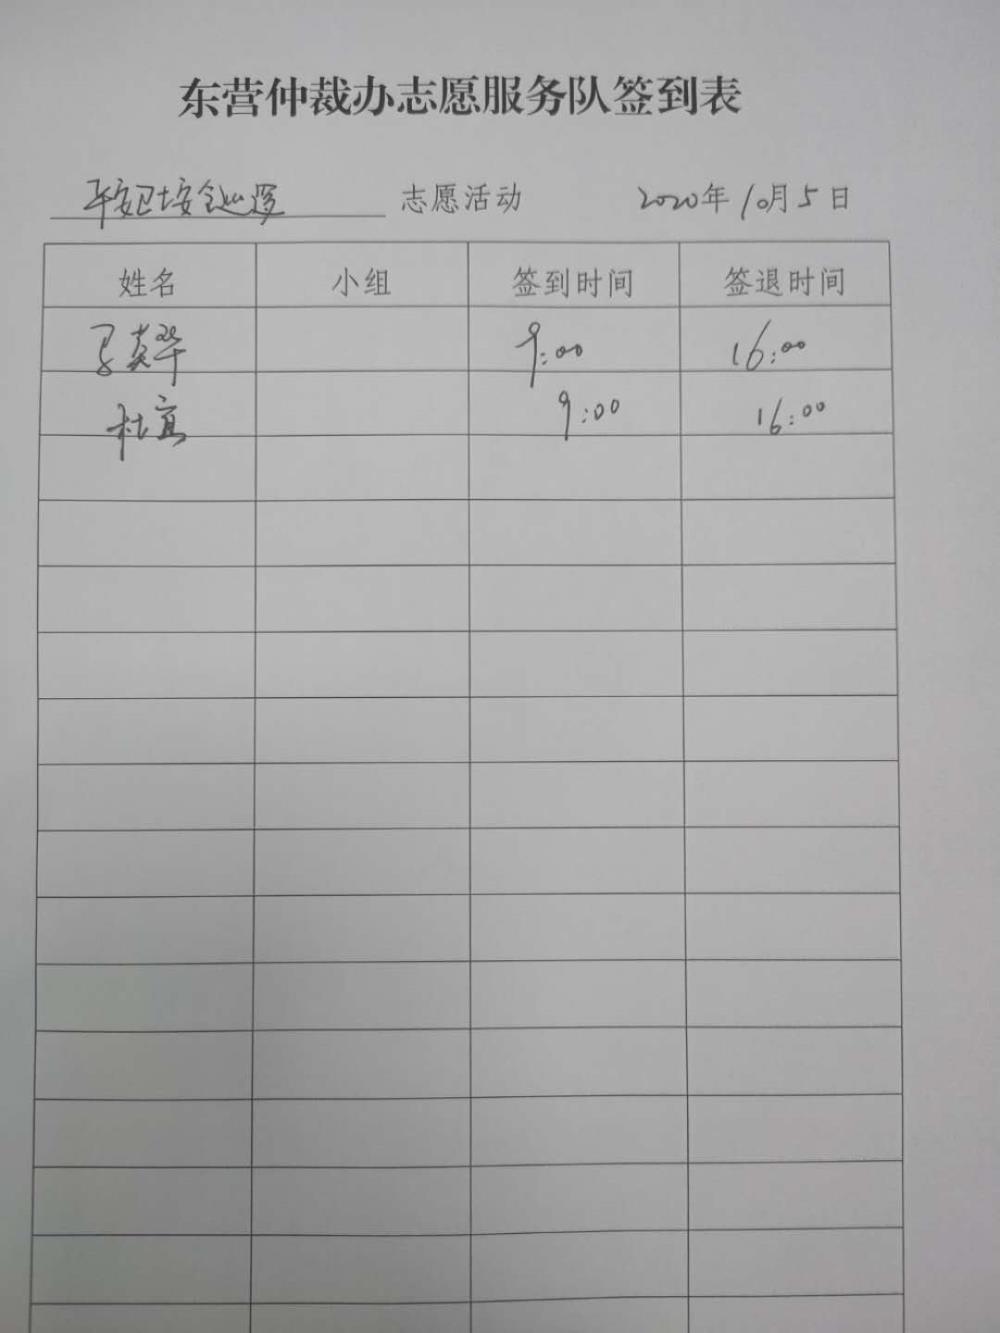 东营仲裁办志愿服务队签到表
平安卫士安全巡逻 志愿活动 2020年10月5日
姓名 小组 签到时间 签退时间
9:00 16:00
杜宜 9:00 16:00